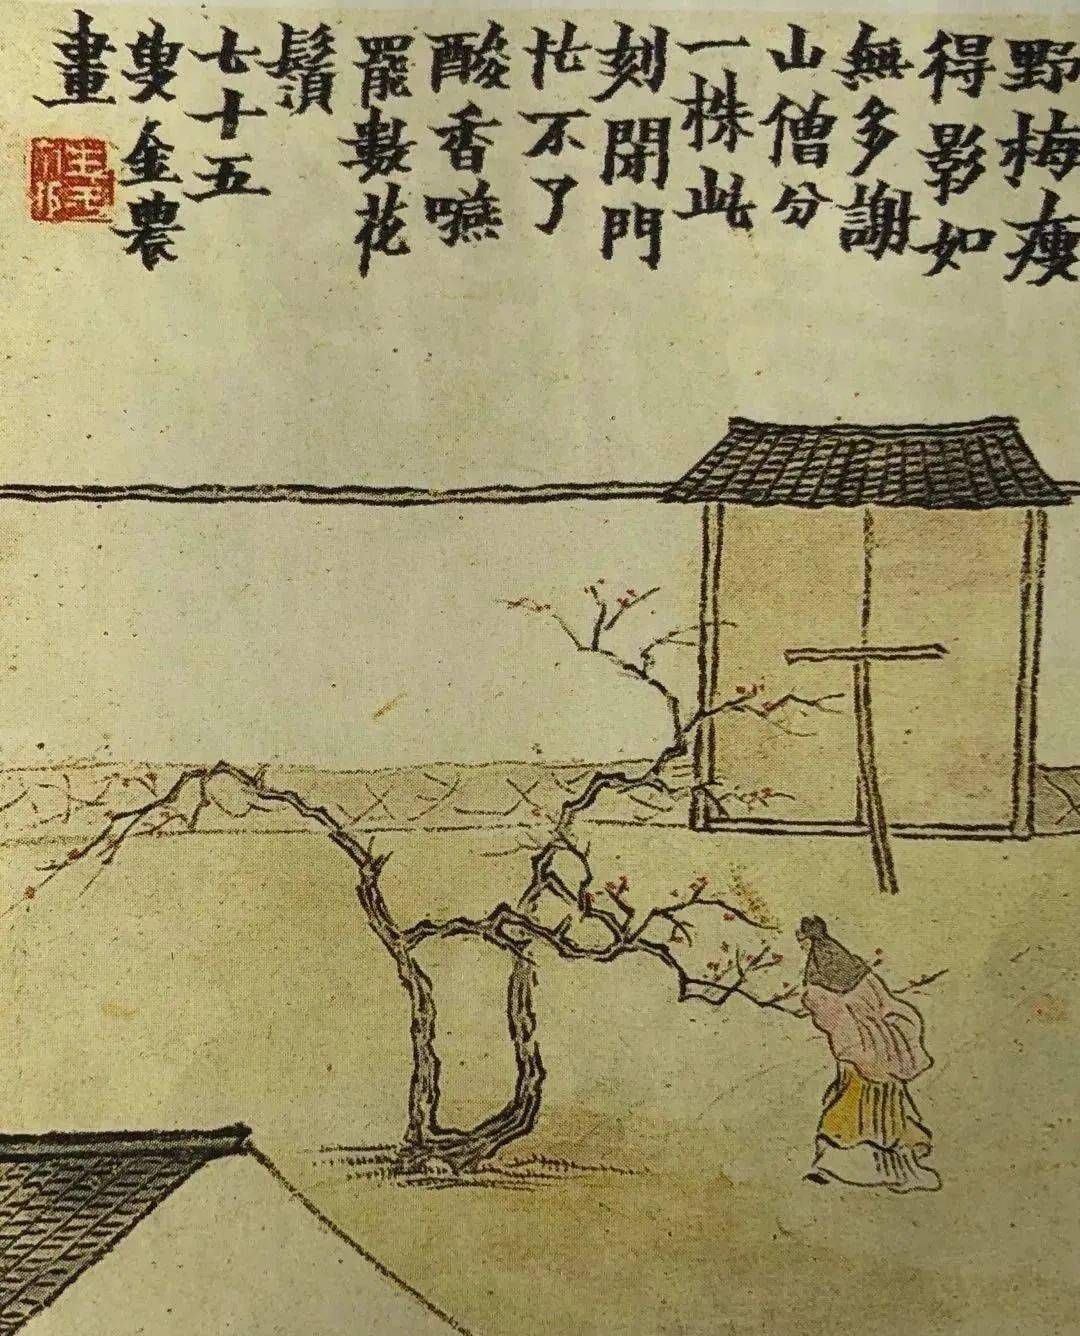 野梅瘦
得影如
無多謝
山僧分
一株此
刻閉門
忙不了
酸香嚥
罷數花
鬚
七十五
叟金農
畫